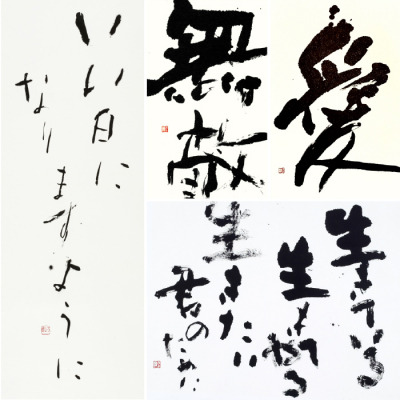 いい日に
なりますように
無敵
愛
生きている
生きてやる
生きたい
君のために